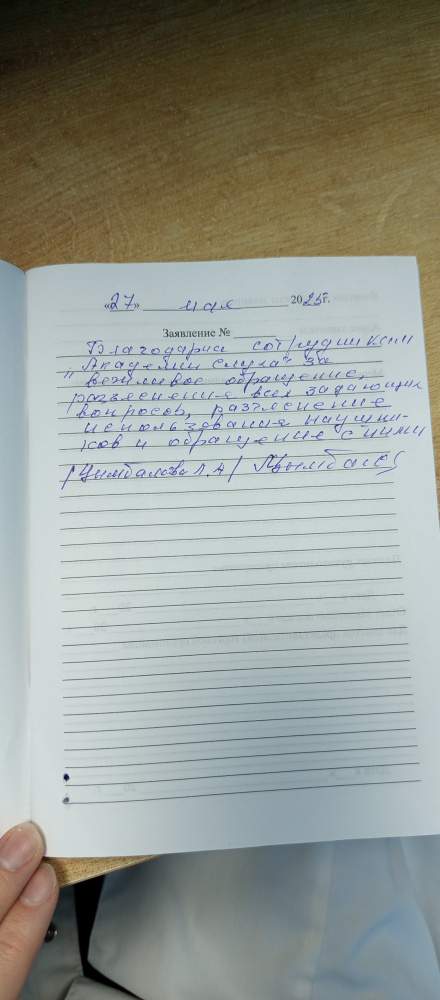 «27» мая 2025г.
Заявление №
Благодарна сотрудникам
"Академии слуха" за
вежливое обращение,
разъяснения всех задающих
вопросов, разъяснение
использования наушни-
ков и обращение с ними
/Цымбалова Л.А/